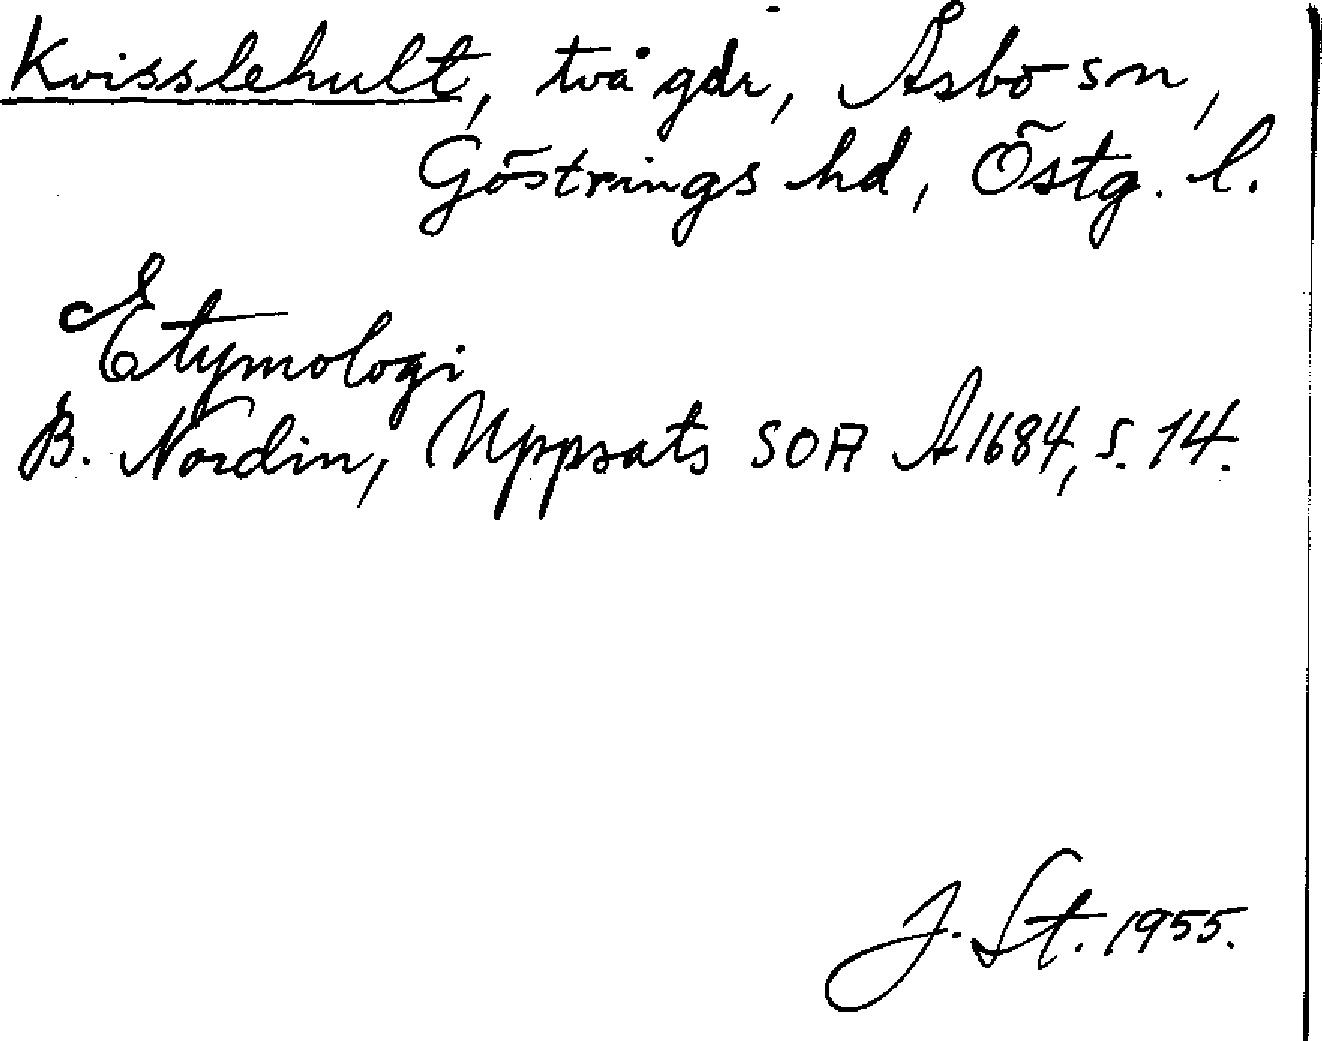 Kvisslehult, två gdr, Åsbo sn,
Göstrings hd, Östg. l.
Etymologi
B. Nordin, Uppsats SOA A1684, s. 14.
J. St. 1955.